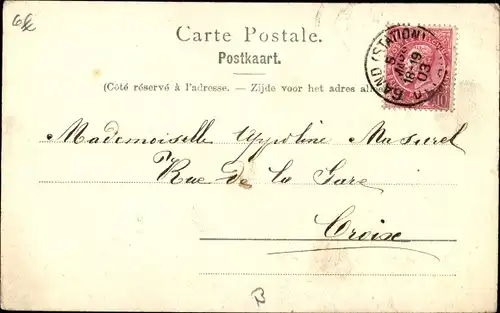 Carte Postale.
Postkaart.
(Côté réservé à l'adresse. — Zijde voor het adres
GAND (STATION)
5
18-19
03
10
Mademoiselle Hyppoline Masurel
Rue de la Gare
Croix
B